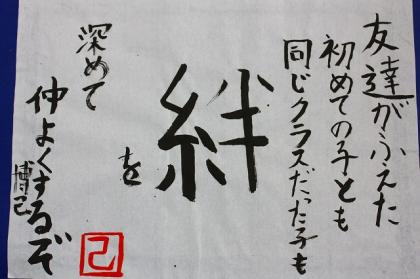 友達がふえた
初めての子とも
同じクラスだった子も
絆
を
深めて
仲よくするぞ
博己
己